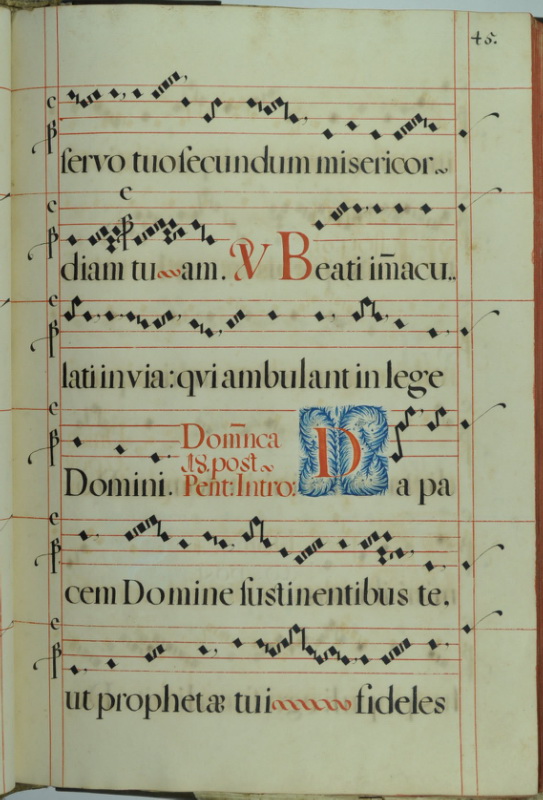 45.
servo tuo secundum misericor~
diam tu~am. V Beati im̄acu..
lati in via: qvi ambulant in lege
Domini. Dom̄nca
18. post~
Pent: Intro: Da pa
cem Domine sustinentibus te,
ut prophetæ tui~~~~ fideles